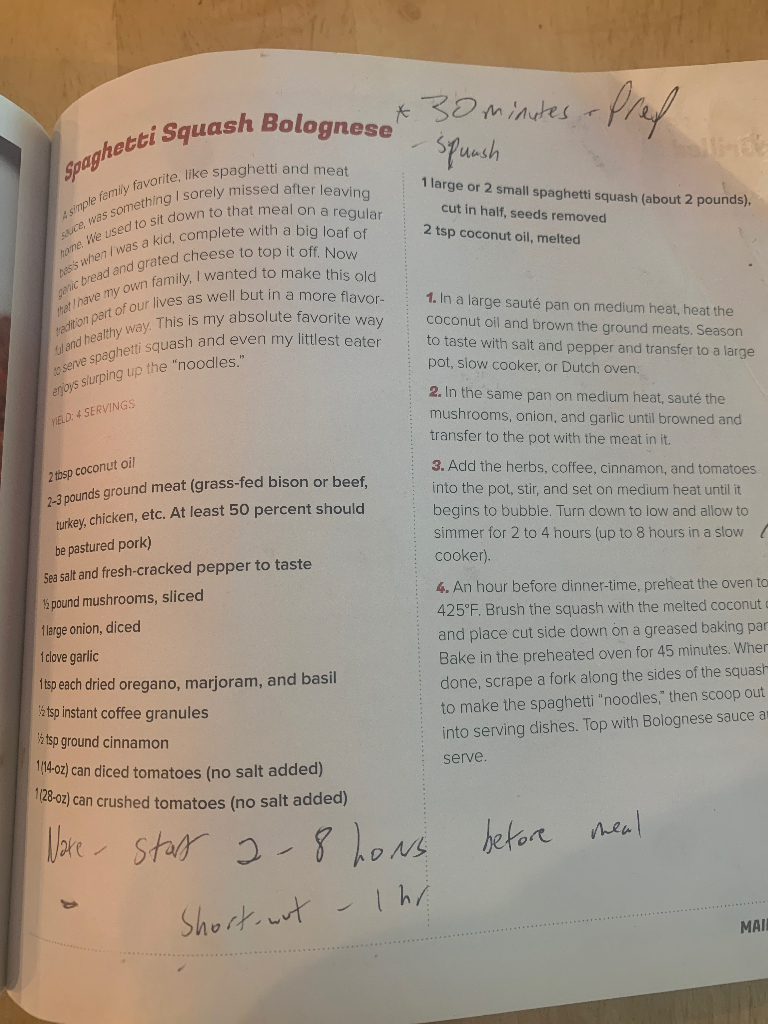 Spaghetti Squash Bolognese
A simple family favorite, like spaghetti and meat
sauce, was something I sorely missed after leaving
home. We used to sit down to that meal on a regular
basis when I was a kid, complete with a big loaf of
garlic bread and grated cheese to top it off. Now
that I have my own family, I wanted to make this old
tradition part of our lives as well but in a more flavor-
ful and healthy way. This is my absolute favorite way
to serve spaghetti squash and even my littlest eater
enjoys slurping up the “noodles.”
YIELD: 4 SERVINGS
2 tbsp coconut oil
2–3 pounds ground meat (grass-fed bison or beef,
turkey, chicken, etc. At least 50 percent should
be pastured pork)
Sea salt and fresh-cracked pepper to taste
½ pound mushrooms, sliced
1 large onion, diced
1 clove garlic
1 tsp each dried oregano, marjoram, and basil
½ tsp instant coffee granules
½ tsp ground cinnamon
1 (14-oz) can diced tomatoes (no salt added)
1 (28-oz) can crushed tomatoes (no salt added)
* 30 minutes - Prep
- Squash
1 large or 2 small spaghetti squash (about 2 pounds),
cut in half, seeds removed
2 tsp coconut oil, melted
1. In a large sauté pan on medium heat, heat the
coconut oil and brown the ground meats. Season
to taste with salt and pepper and transfer to a large
pot, slow cooker, or Dutch oven.
2. In the same pan on medium heat, sauté the
mushrooms, onion, and garlic until browned and
transfer to the pot with the meat in it.
3. Add the herbs, coffee, cinnamon, and tomatoes
into the pot, stir, and set on medium heat until it
begins to bubble. Turn down to low and allow to
simmer for 2 to 4 hours (up to 8 hours in a slow
cooker).
4. An hour before dinner-time, preheat the oven to
425°F. Brush the squash with the melted coconut
and place cut side down on a greased baking pan
Bake in the preheated oven for 45 minutes. When
done, scrape a fork along the sides of the squash
to make the spaghetti “noodles,” then scoop out
into serving dishes. Top with Bolognese sauce
serve.
Note - Start 2 - 8 hours before meal
- Short-cut - 1 hr
MAI